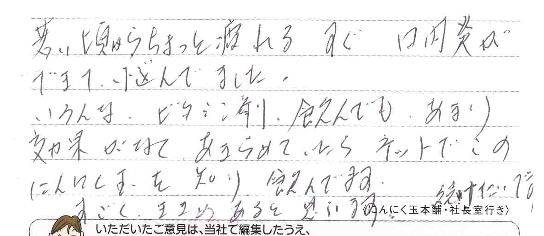 若い頃からちょっと疲れる すぐ 口内炎が
できて、悩んでました。
いろんな、ビタミン剤、飲んでも、あまり
効果がなくて あきらめていたら ネットでこの
にんにく玉を 知り 飲んでます。 続けたいです
すごく、 あると 思います。
(にんにく玉本舗・社長室行き)
いただいたご意見は、当社で編集したうえ、